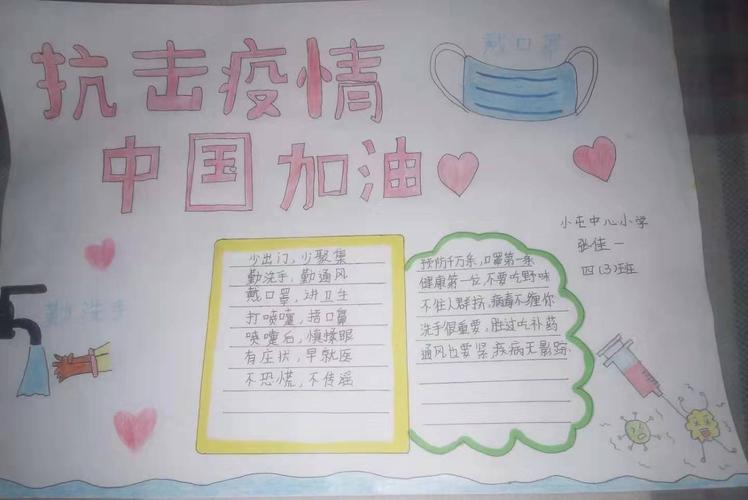 抗击疫情
中国加油
戴口罩
小屯中心小学
张佳一
四(3)班
勤洗手
少出门，少聚集
勤洗手，勤通风
戴口罩，讲卫生
打喷嚏，捂口鼻
喷嚏后，慎揉眼
有症状，早就医
不恐慌，不传谣
预防千万条，口罩第一条
健康第一位，不要吃野味
不往人群挤，病毒不缠你
洗手很重要，胜过吃补药
通风也要紧，疾病无影踪